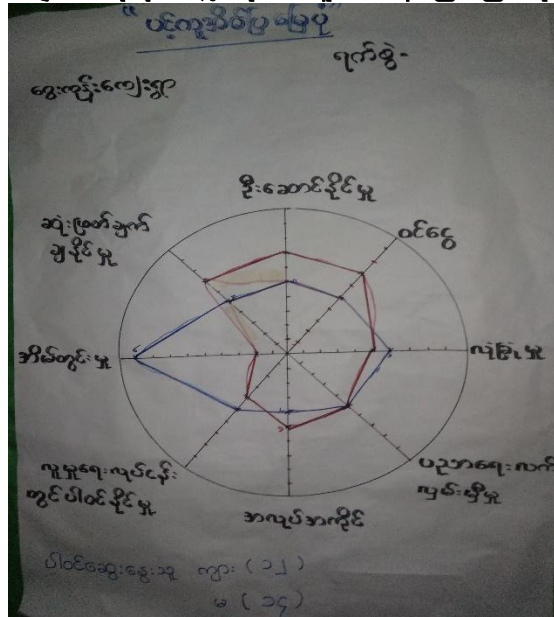 "ပင့်ကူအိမ်ပြမြေပုံ"
ရက်စွဲ-
ကျေးရွာ
ဦးဆောင်နိုင်မှု
ဝင်ငွေ
လုံခြုံမှု
ပညာရေးလက်
လှမ်းမှီမှု
အလုပ်အကိုင်
လူမှုရေးလုပ်ငန်း
တွင်ပါဝင်နိုင်မှု
အိမ်တွင်းမှု
ဆုံးဖြတ်ချက်
ချနိုင်မှု
ပါဝင်ဆွေးနွေးသူ ကျား (၁၂)
မ (၁၄)